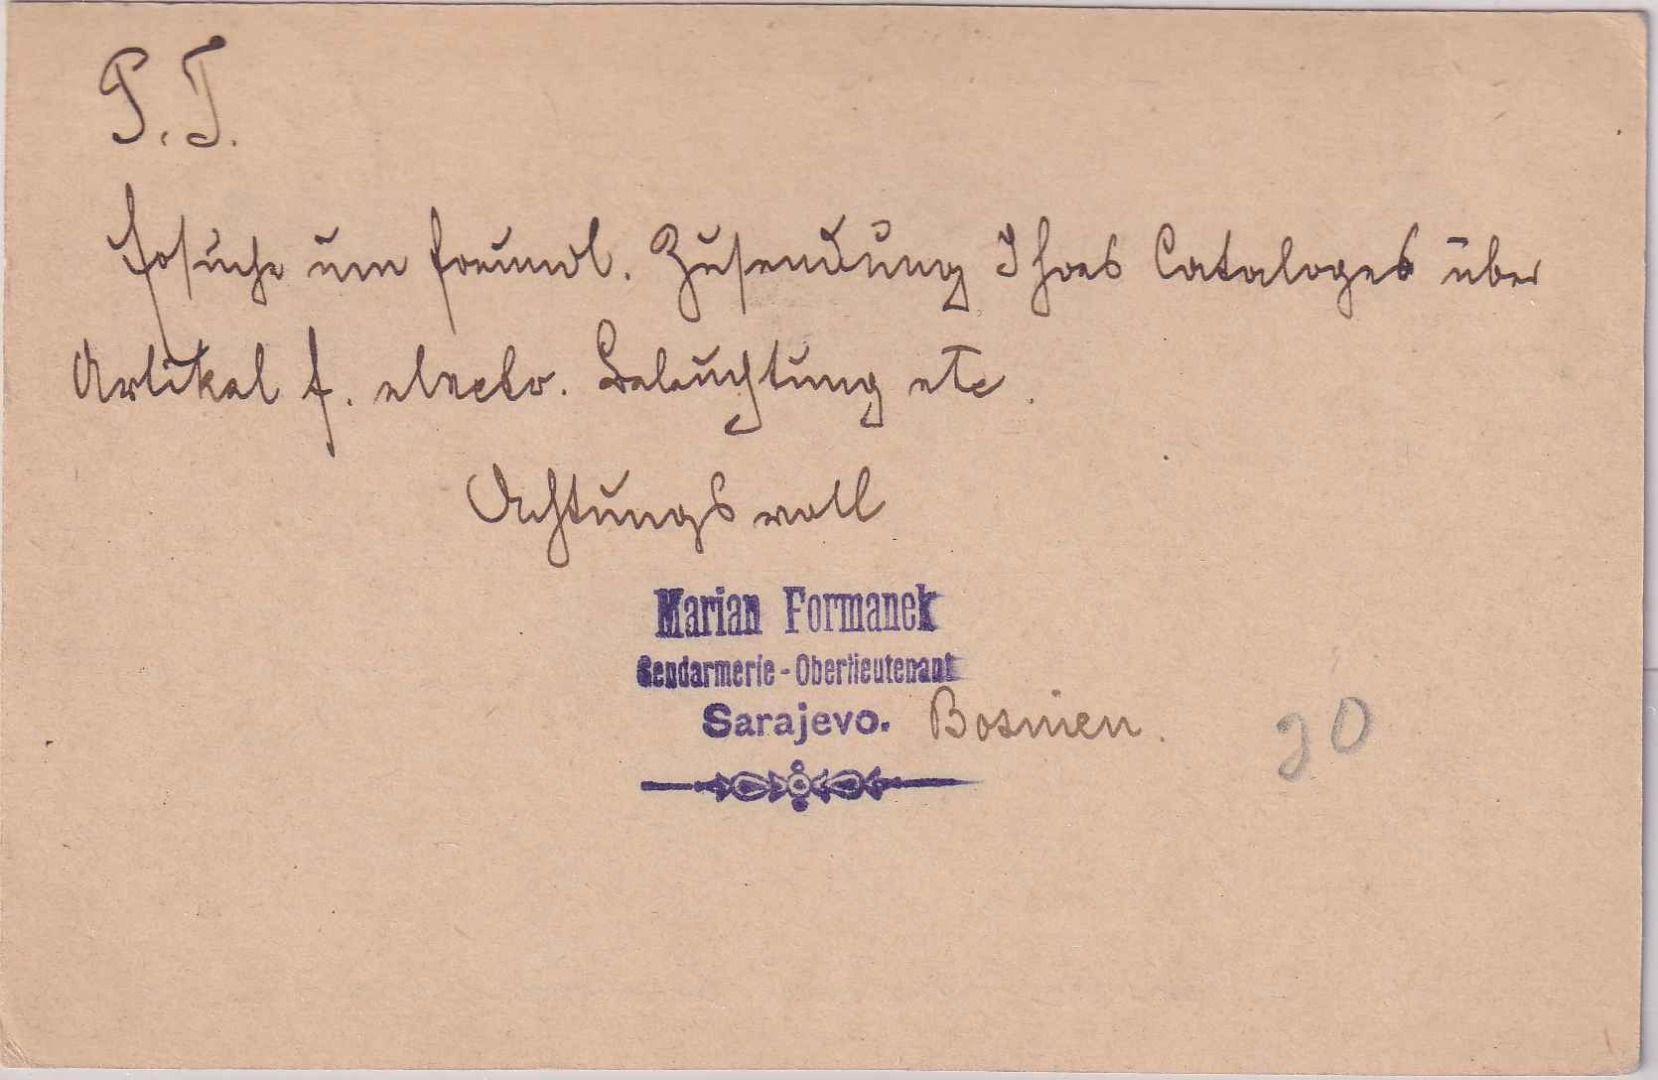 P. T.
Ersuche um freundl. Zusendung Ihres Cataloges über
Artikel f. electr. Beleuchtung etc.
Achtungsvoll
Marian Formanek
Gendarmerie-Oberlieutenant
Sarajevo. Bosnien.
20